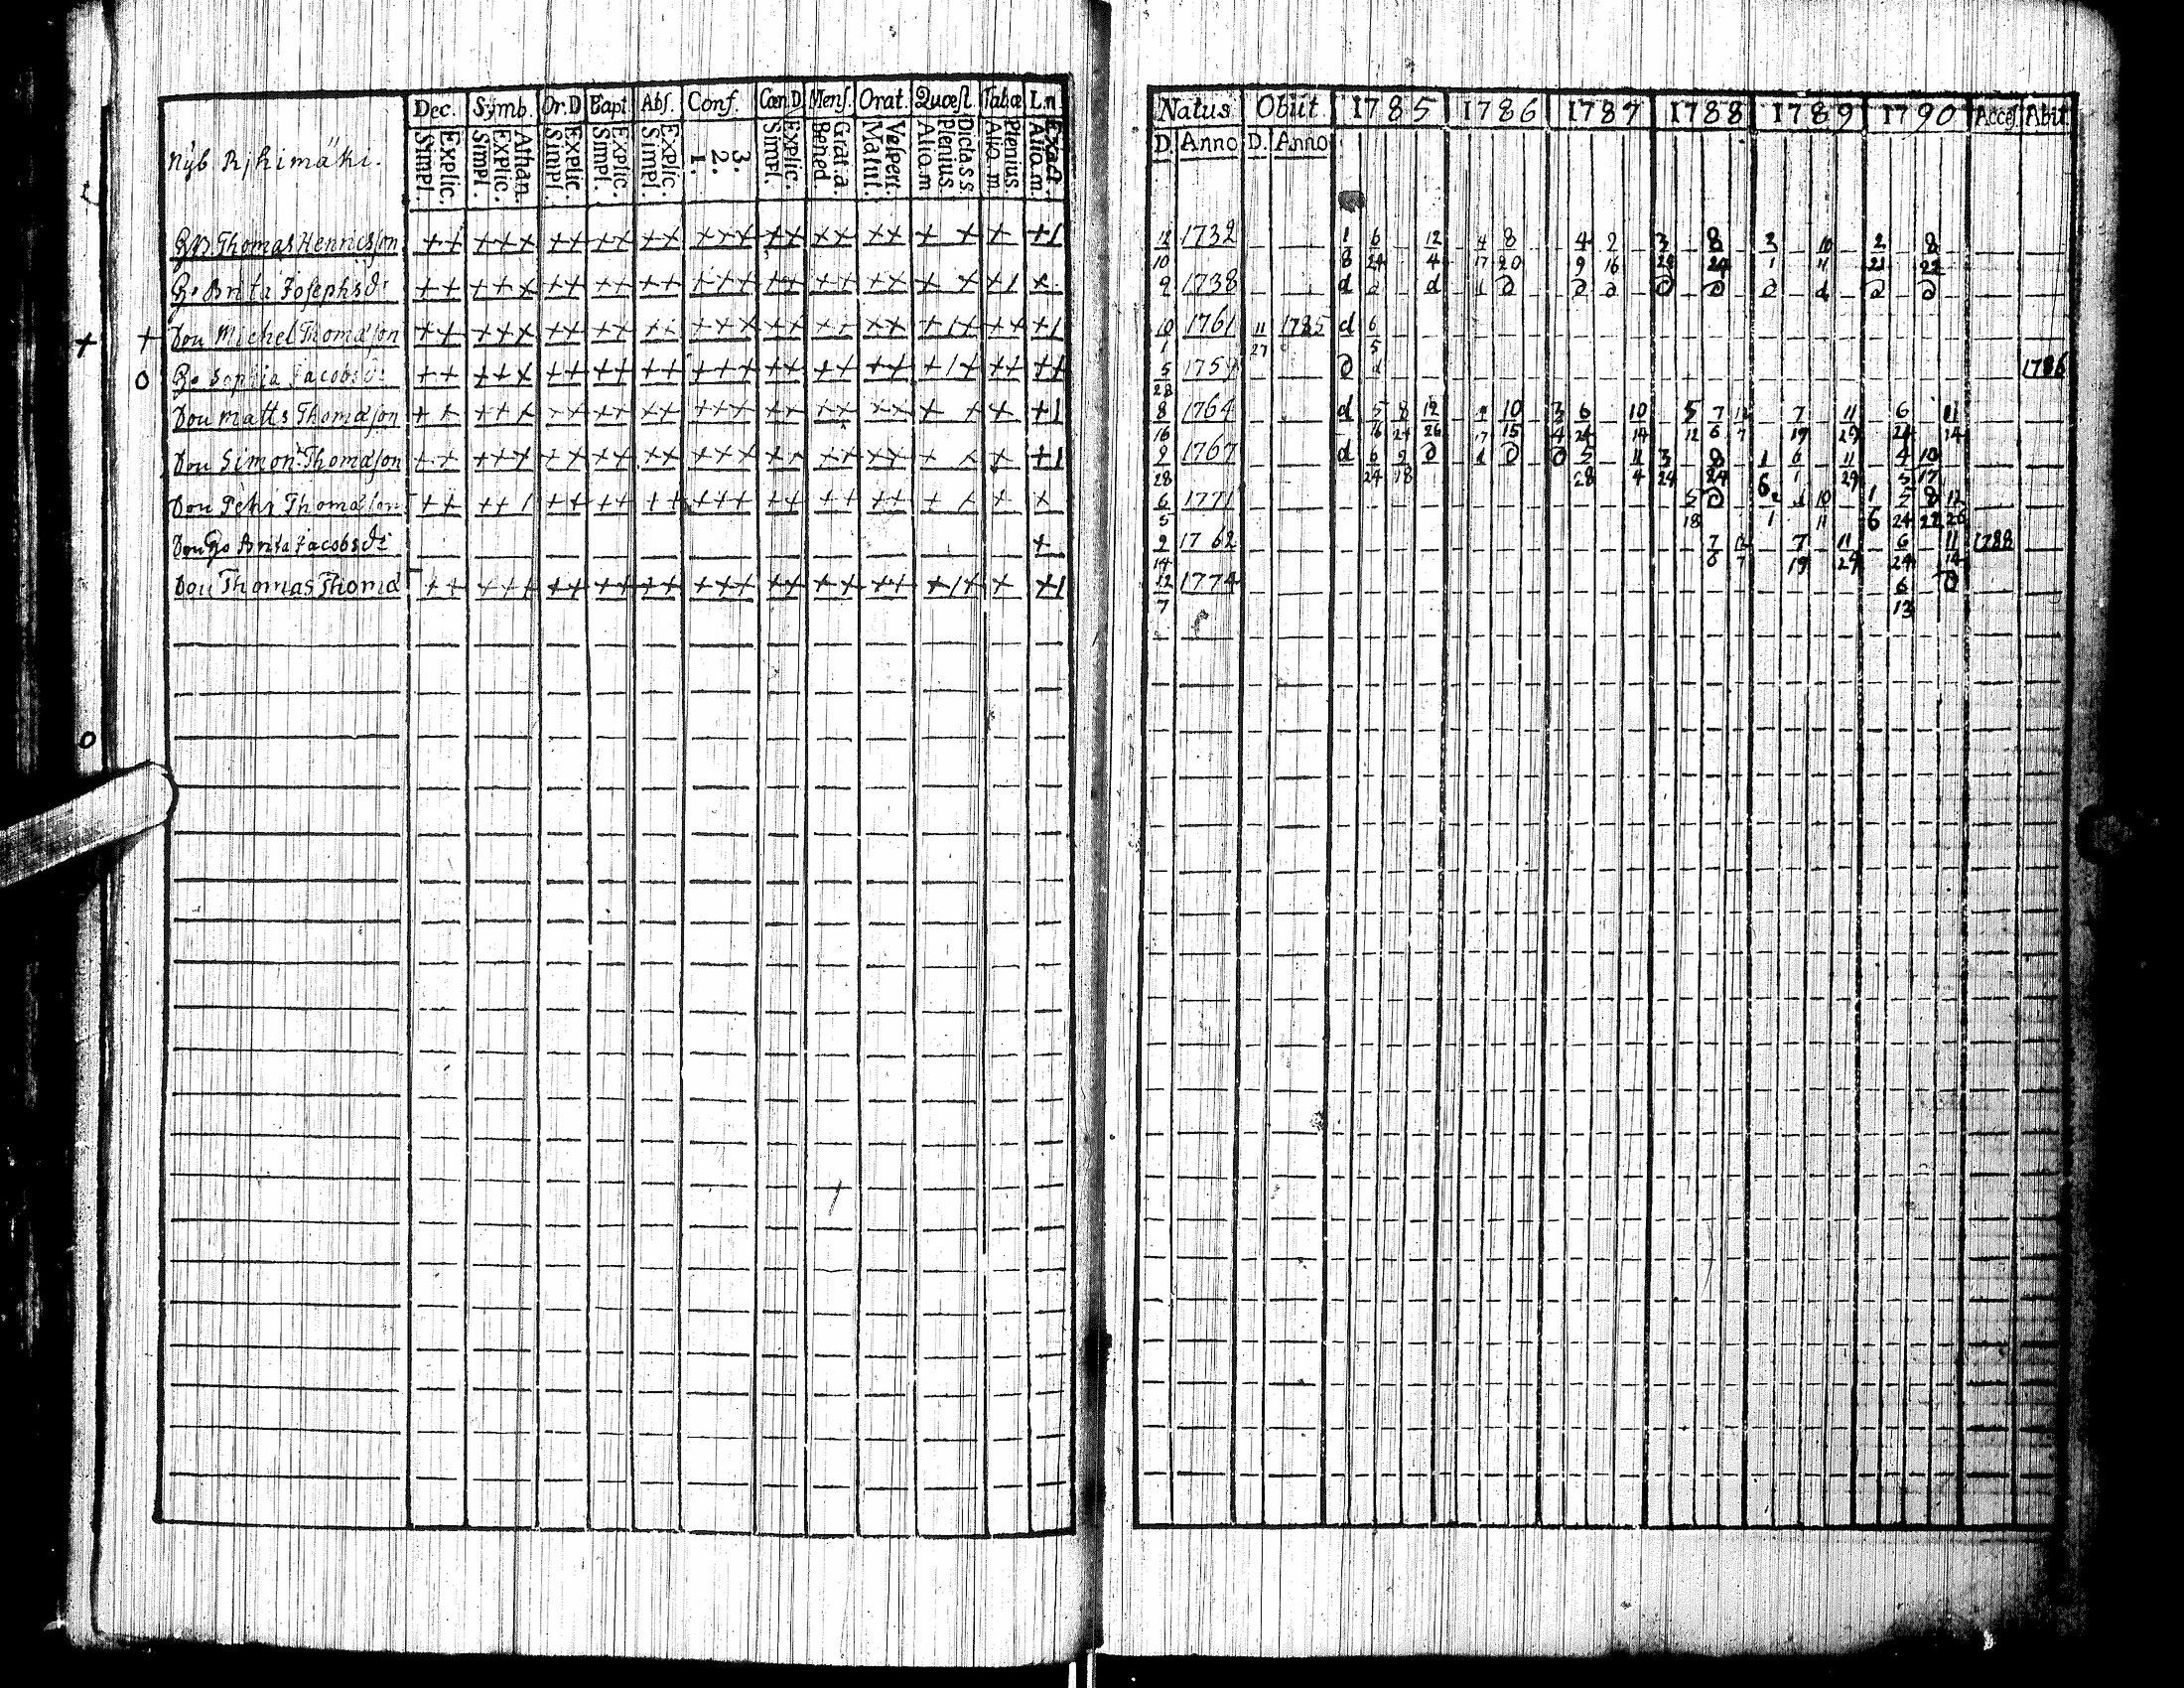 Dec. Symb. Or.D Bapt. Abſ. Conf. Cœn.D Menſ. Orat. Quœſt. Tabœ L.n
Simpl. Explic. Simpl. Explic. Athan. Simpl. Explic. Simpl. Explic. Simpl. Explic. 1. 2. 3. Simpl. Explic. Bened. Grat.a. Matut. Veſpert. Alio.m Plenius Dicta s.s. Alio.m. Plenius. Alio.m. Exact.
Nÿb. Rjhimäki.
Thomas Henricsſon ++ +++ ++ ++ ++ +++ ++ ++ ++ + + + +1
Brita Joſephsdr ++ +++ ++ ++ ++ +++ ++ ++ ++ + + +1 +
+ + Dou Michel Thomaſon ++ +++ ++ ++ ++ +++ ++ ++ ++ +1+ ++ +1
0 Sophia Jacobsdr ++ +++ ++ ++ ++ +++ ++ ++ ++ +1+ ++ ++
Dou Matts Thomaſon ++ +++ ++ ++ ++ +++ ++ ++ ++ + + + +1
Dou Simon Thomaſon ++ +++ ++ ++ ++ +++ ++ ++ ++ + + + +1
Dou Pehr Thomaſon ++ ++1 ++ ++ ++ +++ ++ ++ ++ + + + +
Dou Brita Jacobsdr +
Dou Thomas Thoma ++ +++ ++ ++ ++ +++ ++ ++ ++ +1+ + +1
0
Natus. Obiit. 1785 1786 1787 1788 1789 1790 Acceſ Abit
D. Anno D. Anno
12/10 1732 1/8 6/24 12/4 4/17 8/20 4/9 2/16 3/24 8/24 3/1 10/11 2/21 8/22
9 1738 d d d d d d d d d d d d
10/1 1761 11/27 1785 d 6/5
5/28 1759 d d 1786
8/16 1764 d 5/16 8/24 12/26 4/17 10/15 3/4 6/24 10/14 5/12 7/6 12/7 7/19 11/29 6/24 11/14
9/28 1767 d 6/24 9/18 d d d d 5/28 11/4 3/24 8/24 1/6 6/1 11/29 4/5 10/17
6/5 1771 5/18 d 2/1 d 10/11 1/6 5/24 8/22 12/26
9/14 1762 7/6 12/7 7/19 11/29 6/24 11/14 1788
12/7 1774 6/13 d